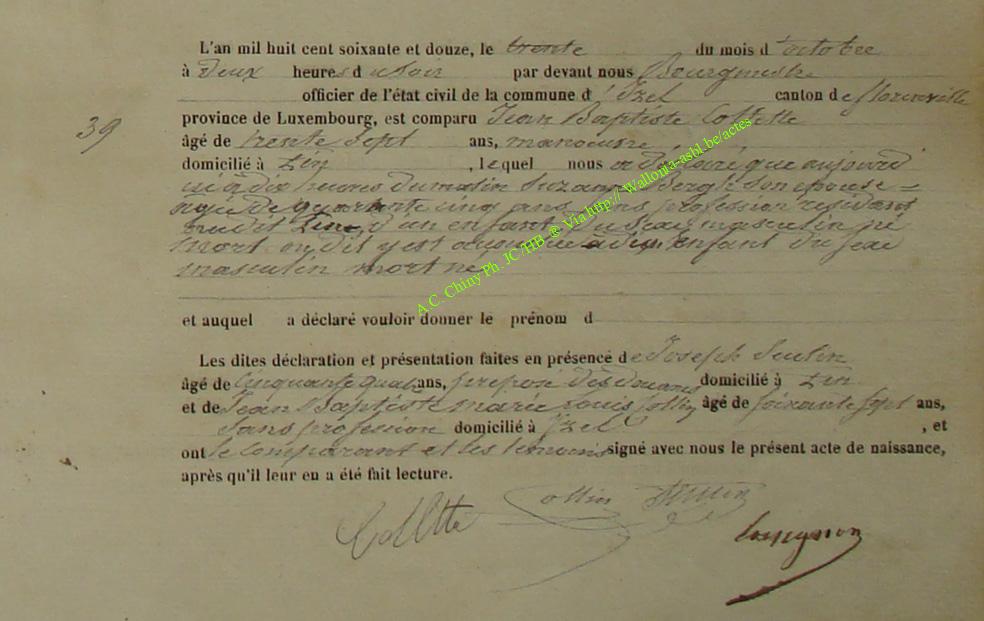 L'an mil huit cent soixante et douze, le trente du mois d'octobre
à Deux heures du soir par devant nous Bourgmestre
officier de l'état civil de la commune d'Izel canton de florenville
39
province de Luxembourg, est comparu Jean Baptiste Collette
âgé de trente sept ans, manoeuvre
domicilié à , lequel nous a déclaré que aujourd
à dix heures du matin Suzanne son épouse
agée de quarante cinq ans, sans profession résidant
audit d'un enfant du sexe masculin né
mort enfant du sexe
masculin mort né
et auquel a déclaré vouloir donner le prénom d
Les dites déclaration et présentation faites en présence de Joseph
âgé de cinquante quatre ans, preposé des douanes domicilié à
et de Jean Baptiste marie Louis Collin âgé de soixante sept ans,
sans profession domicilié à Izel , et
ont le comparant et les temoins signé avec nous le présent acte de naissance,
après qu'il leur en a été fait lecture.
Collette Collin
A.C. Chiny Ph. JC /HB ® Via http:// Wallonia-asbl.be/actes